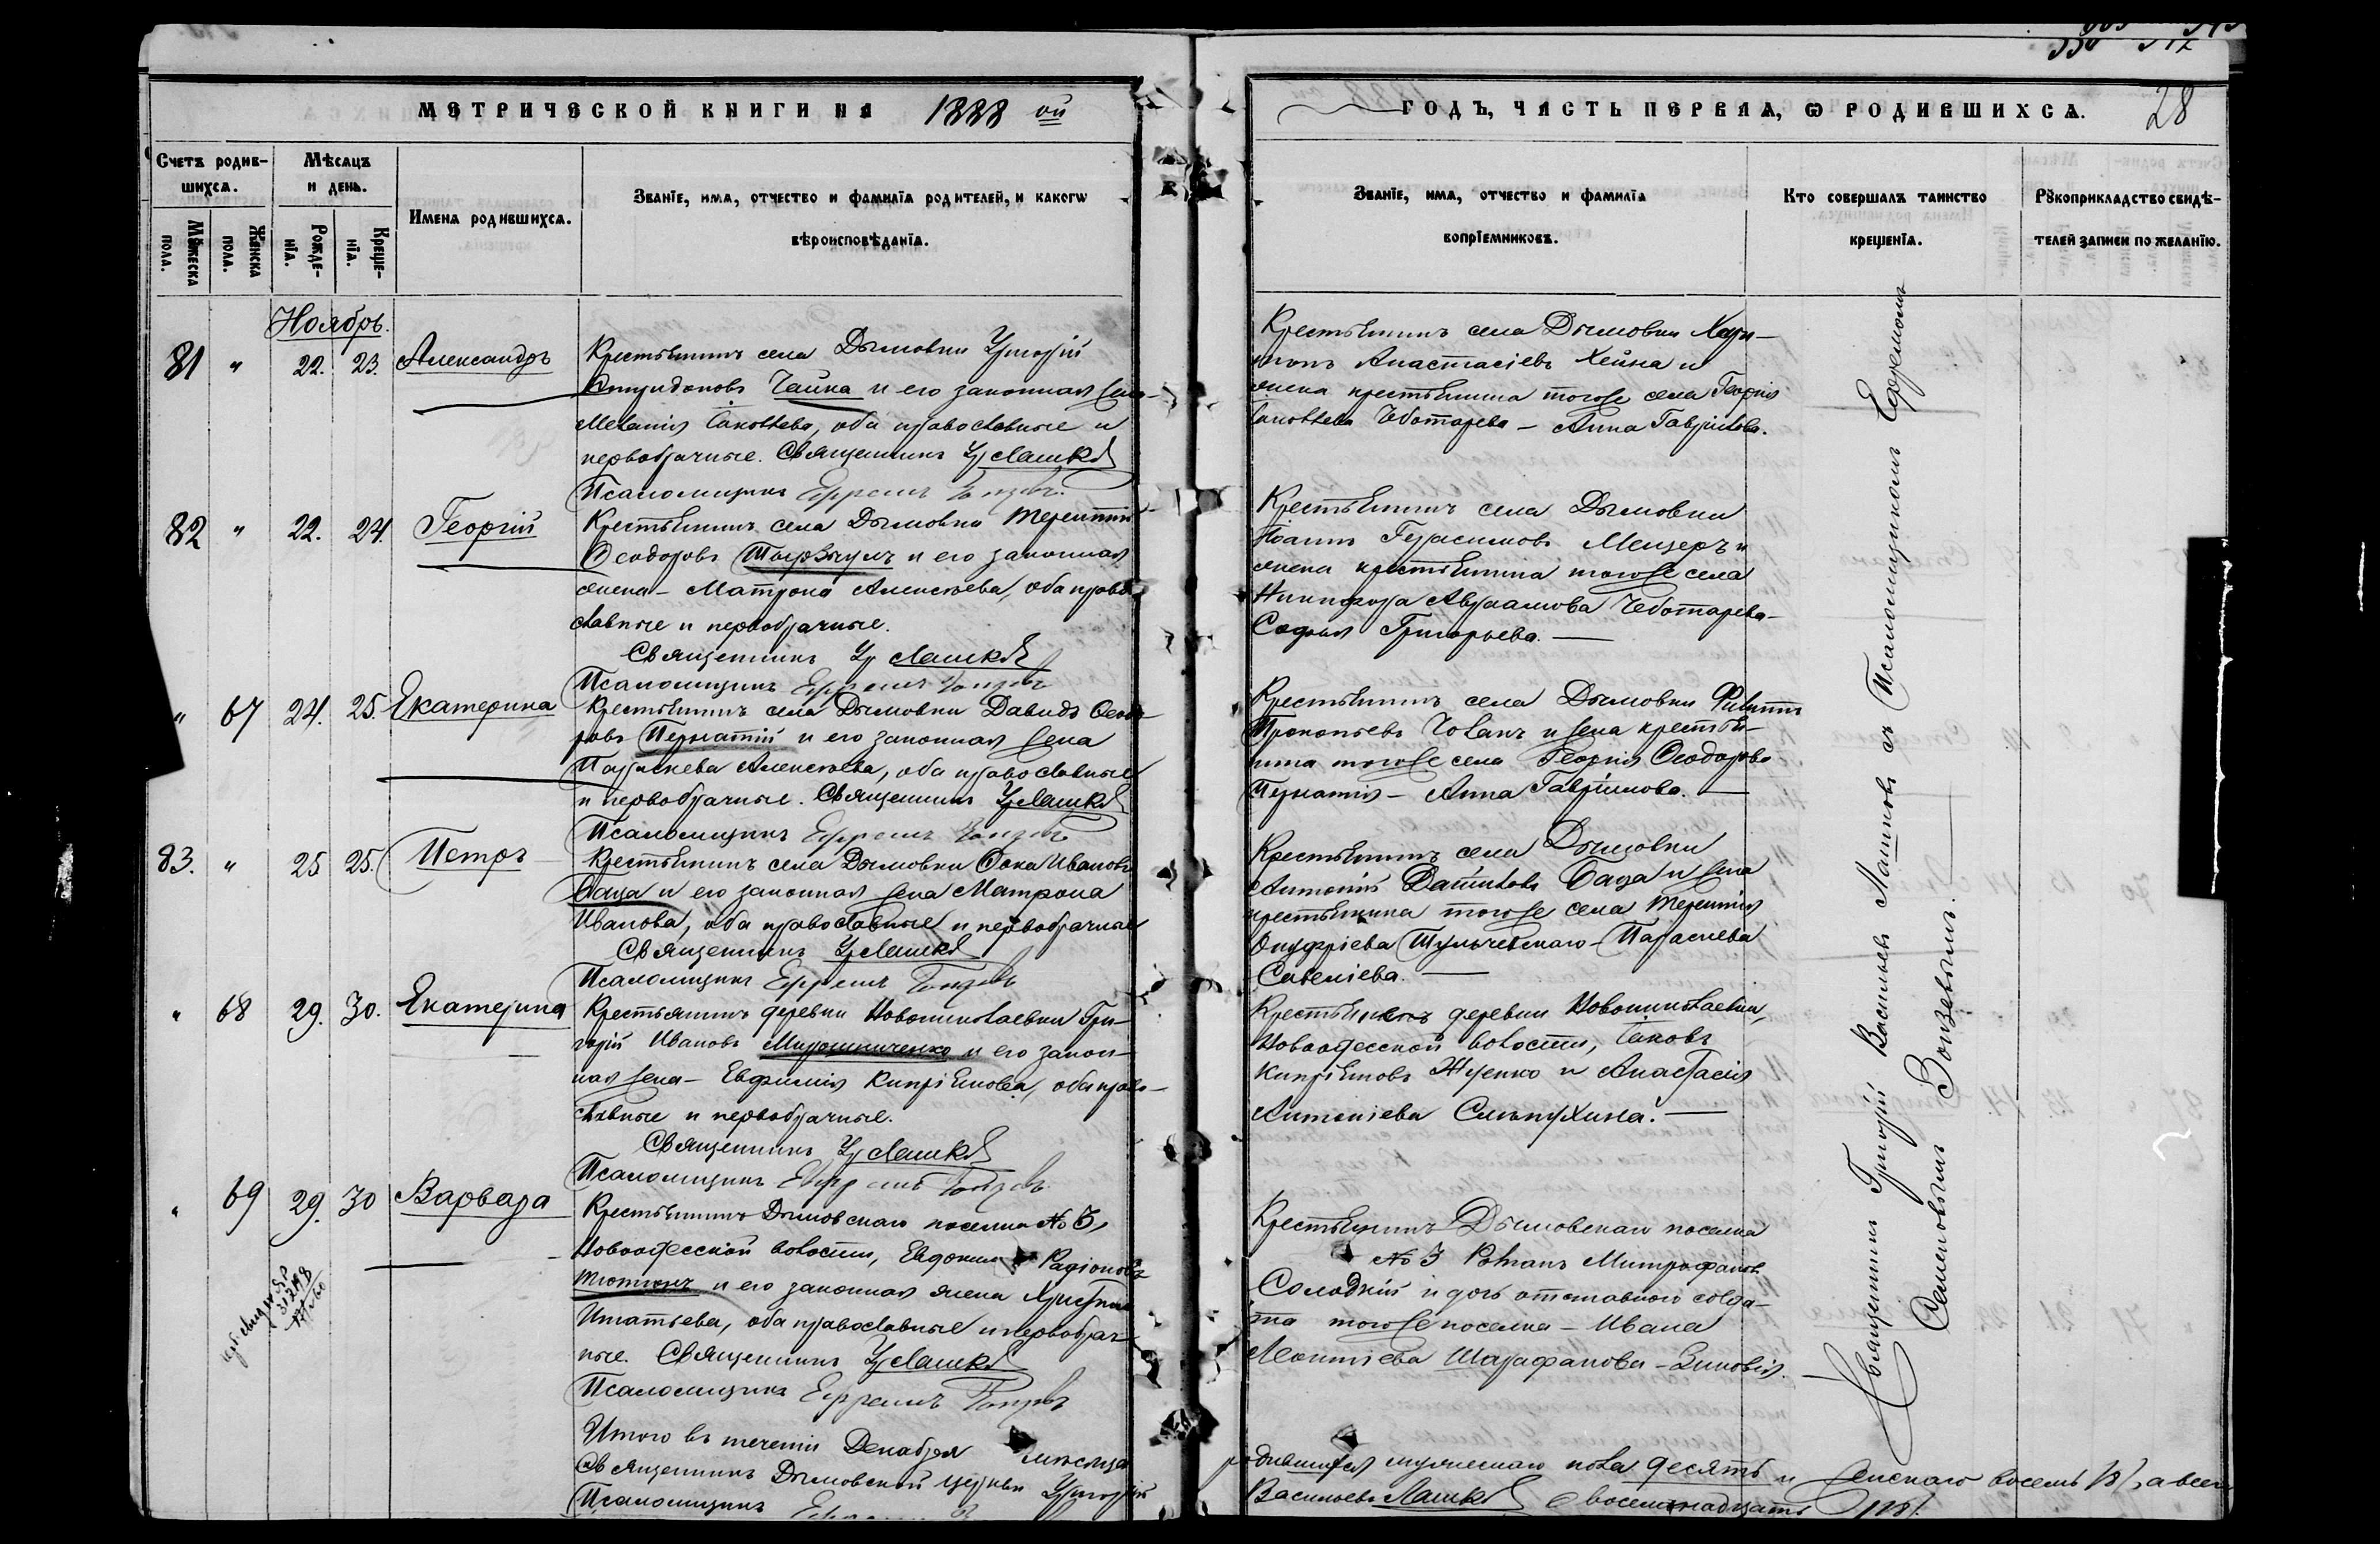 МЕТРИЧЕСКОЙ КНИГИ НА 1888 ой
ГОДЪ, ЧАСТЬ ПЕРВАЯ, Ѡ РОДИВШИХСѦ. 28
Счетъ родив-
шихсѧ.
Мѣсѧцъ
и день.
Имена родившихсѧ.
Званїе, имѧ, отчество и фамилїѧ родителей, и какогѡ
вѣроисповѣданїѧ.
Мꙋжеска
пола.
Женска
пола.
Рожде-
нїѧ.
Креще-
нїѧ.
Званїе, имѧ, отчество и фамилїѧ
воспрїемниковъ.
Кто совершалъ таинство
крещенїѧ.
Рꙋкоприкладство свидѣ-
телей записи по желанїю.
Ноябрь.
81 " 22. 23. Александръ
Крестьянинъ села Дымовки Григорій
Спиридоновъ Чайка и его законная жена
Меланія Іаковлева, оба православные и
первобрачные. Священникъ Гр Лашковъ
Псаломщикъ Ефремъ
Крестьянинъ села Дымовки Хари-
тонъ Анастасіевъ Хейна и
жена крестьянина тогоже села Георгія
Іаковлева Чеботарева – Анна Гавріилова.
82 " 22. 24. Георгій
Крестьянинъ села Дымовки Терентій
Ѳеодоровъ и его законная
жена – Матрона Алексѣева, оба право-
славные и первобрачные.
Священникъ Гр Лашковъ
Псаломщикъ Ефремъ
Крестьянинъ села Дымовки
Іоаннъ Герасимовъ Мещеръ и
жена крестьянина тогоже села
Никифора Авраамова Чеботарева –
Софія Григорьева. —
" 67 24. 25. Екатерина
Крестьянинъ села Дымовки Давидъ Ѳеодо-
ровъ Пернатій и его законная жена
Параскева Алексѣева, оба православные
и первобрачные. Священникъ Гр Лашковъ
Псаломщикъ Ефремъ
Крестьянинъ села Дымовки Филиппъ
Прокопьевъ Чоланъ и жена крестья-
нина тогоже села Георгія Ѳеодорова
Пернатія – Анна Гавріилова. —
83. " 25 25. Петръ
Крестьянинъ села Дымовки Ѳока Ивановъ
Баца и его законная жена Матрона
Иванова, оба православные и первобрачные
Священникъ Гр Лашковъ
Псаломщикъ Ефремъ
Крестьянинъ села Дымовки
Антоній Даніиловъ Баца и жена
крестьянина тогоже села Терентія
Онуфріева Тульчевскаго – Параскева
Савеліева. —
" 68 29. 30. Екатерина
Крестьянинъ деревни Новониколаевки Гри-
горій Ивановъ Мирошниченко и его закон-
ная жена – Евфимія Кипріянова, оба право-
славные и первобрачные.
Священникъ Гр Лашковъ
Псаломщикъ Ефремъ
Крестьянинъ деревни Новониколаевки,
Новоодесской волости, Іаковъ
Кипріяновъ Жученко и Анастасія
Антоніева Слѣпухина. —
" 69 29. 30 Варвара
Крестьянинъ Дымовскаго поселка № 3,
Новоодесской волости, Евдокимъ Радіоновъ
Тютюнъ и его законная жена Христина
Игнатьева, оба православные и первобрач-
ные. Священникъ Гр Лашковъ
Псаломщикъ Ефремъ
Крестьянинъ Дымовскаго поселка
№ 3 Романъ Митрофановъ
Солодкій и дочь отставного солда-
та тогоже поселка – Ивана
Леонтіева Шарафанова – Зиновія.
Священникъ Григорій Васильевъ Лашковъ съ Псаломщикомъ Ефремомъ
Семеновымъ
Итого въ теченіи Декабря мѣсяца
родившихся мужескаго пола десять и женскаго восемь /8/, а всего
Священникъ Дымовской церкви Григорій
Васильевъ Лашковъ восемнадцать /18/.
Псаломщикъ